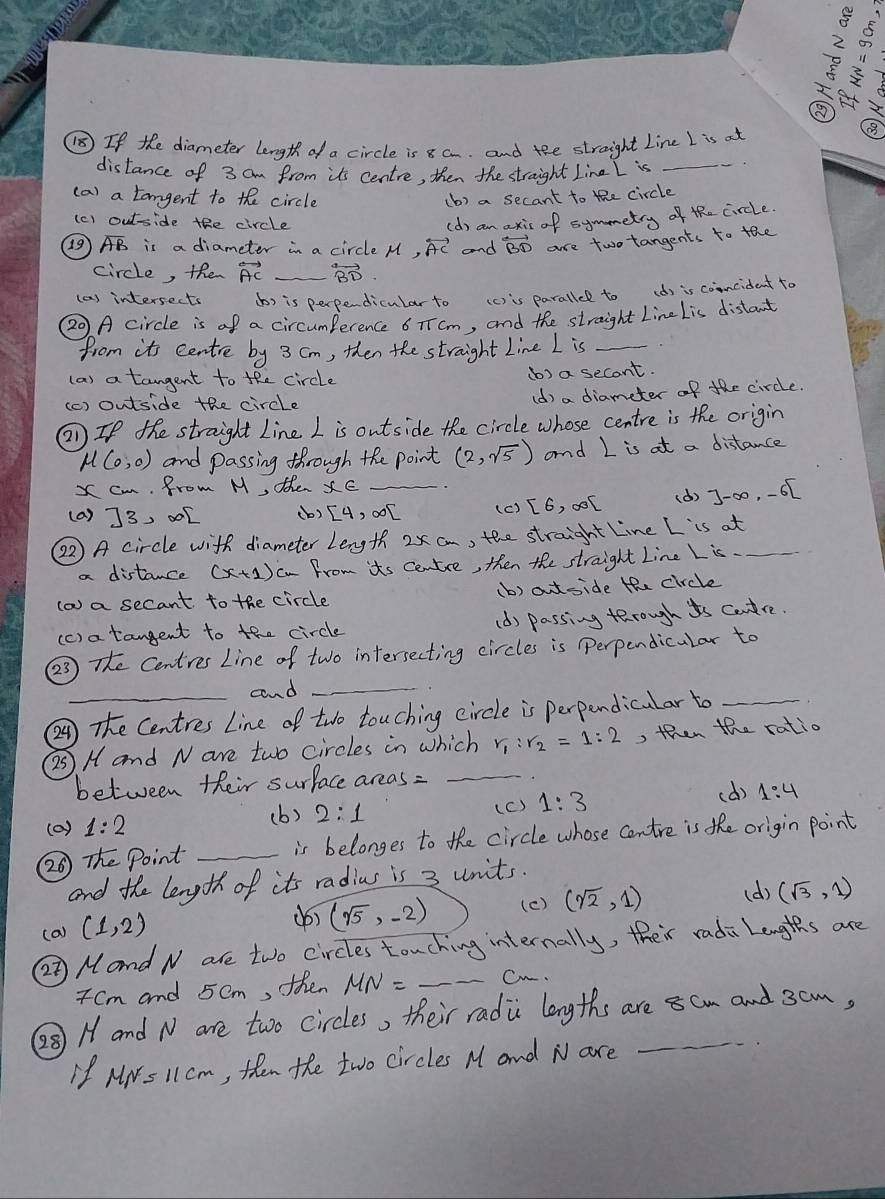 (18) If the diameter length of a circle is 8 cm. and the straight Line L is at
distance of 3 cm from its centre, then the straight Line L is ______.
(a) a tangent to the circle (b) a secant to the circle
(c) outside the circle (d) an axis of symmetry of the circle.
(19) A̅B̅ is a diameter in a circle M, AC↔ and BD↔ are two tangents to the
circle, then AC↔ ____ BD↔.
(a) intersects (b) is perpendicular to (c) is parallel to (d) is coincident to
(20) A circle is of a circumference 6 π cm, and the straight Line L is distant
from its centre by 3 cm, then the straight Line L is _____.
(a) a tangent to the circle (b) a secant.
(c) outside the circle (d) a diameter of the circle.
(21) If the straight Line L is outside the circle whose centre is the origin
M(0,0) and passing through the point (2,√5) and L is at a distance
x cm. from M, then x ∈ _____.
(a) ]3, ∞[ (b) [4, ∞[ (c) [6, ∞[ (d) ]-∞, -6[
(22) A circle with diameter Length 2x cm, the straight Line L is at
a distance (x+1) cm from its centre, then the straight Line L is _____
(a) a secant to the circle (b) outside the circle
(c) a tangent to the circle (d) passing through its centre.
(23) The Centres Line of two intersecting circles is Perpendicular to
__________ and ______.
(24) The Centres Line of two touching circle is perpendicular to _____.
(25) M and N are two circles in which r₁ : r₂ = 1:2, then the ratio
between their surface areas = _____.
(a) 1:2 (b) 2:1 (c) 1:3 (d) 1:4
(26) The Point _____ is belonges to the circle whose centre is the origin point
and the length of its radius is 3 units.
(a) (1,2) (b) (√5, -2) (c) (√2, 1) (d) (√3, 1)
(27) M and N are two circles touching internally, their radii Lengths are
7cm and 5cm, then MN = ____ cm.
(28) M and N are two circles, their radii lengths are 8 cm and 3 cm,
if MN = 11 cm, then the two circles M and N are ______.
(29) M and N are
If MN = 9 cm,
(30) M and